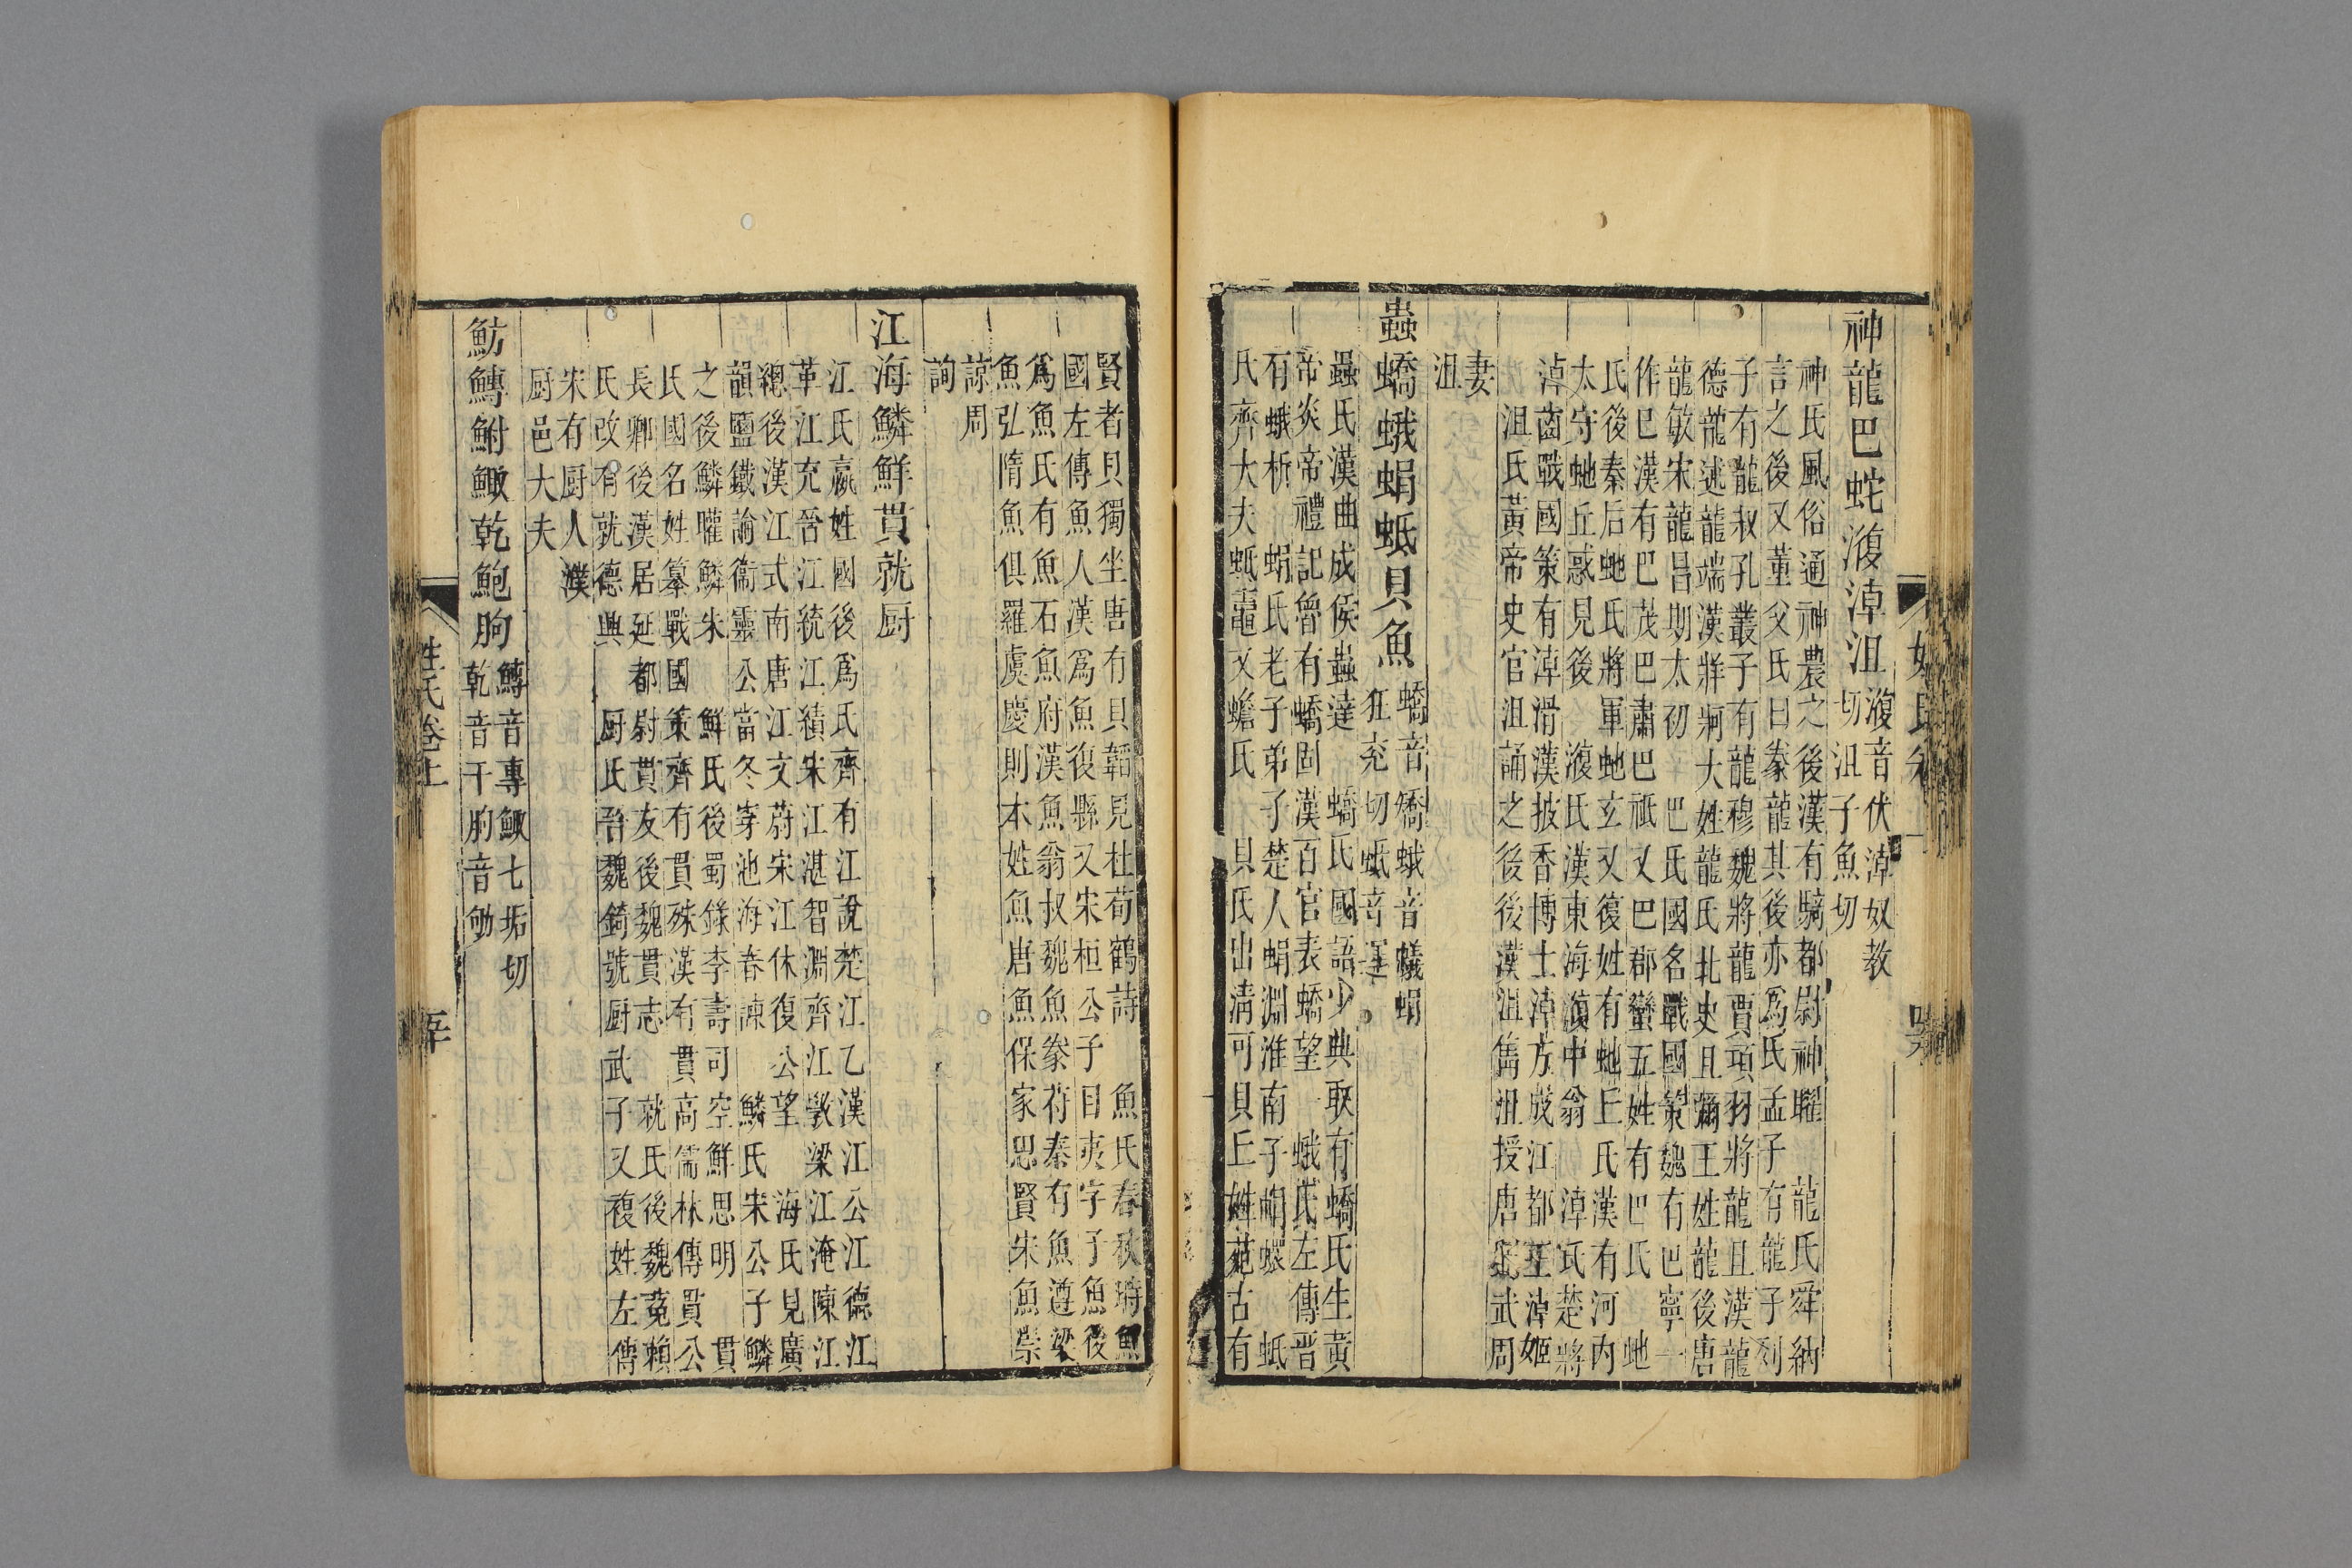 神龍巴蛇澓淖沮
澓音伏淖奴教
切沮子魚切
神氏風俗通神農之後漢有騎都尉神曜 龍氏舜納
言之後又董父氏曰豢龍其後亦爲氏孟子有龍子列
子有龍叔孔叢子有龍穆魏將龍賈項羽將龍且漢龍
德龍述龍端漢牂牁大姓龍氏北史且彌王姓龍後唐
龍敏宋龍昌期太初 巴氏國名戰國策魏有巴寧一
作巴漢有巴茂巴肅巴祇又巴郡蠻五姓有巴氏 虵
氏後秦后虵氏將軍虵玄又復姓有虵丘氏漢有河内
太守虵丘惑見後 澓氏漢東海澓中翁 淖氏楚將
淖齒戰國策有淖滑漢披香博士淖方成江都王淖姬
沮氏黃帝史官沮誦之後後漢沮雋沮授唐 武周
妻
沮
蟲蟜蛾蜎蚳貝魚
蟜音矯蛾音蟻蜎
狂兗切蚳音
蟲氏漢曲成侯蟲達 蟜氏國語少典取有蟜氏生黃
帝炎帝禮記魯有蟜固漢百官表蟜望 蛾氏左傳晋
有蛾析 蜎氏老子弟子楚人蜎淵淮南子蜎蠉 蚳
氏齊大夫蚳鼃又蟾氏 貝氏出清可貝丘姓苑古有
賢者貝獨坐唐有貝韜見杜荀鶴詩 魚氏春秋時魚
國左傳魚人漢爲魚復縣又宋桓公子目夷字子魚後
爲魚氏有魚石魚府漢魚翁叔魏魚豢苻秦有魚遵梁
魚弘隋魚俱羅虞慶則本姓魚唐魚保家思賢宋魚崇
諒周
詢
江海鱗鮮貫就厨
江氏嬴姓國後爲氏齊有江說楚江乙漢江公江德江
革江充晉江統江績宋江湛智淵齊江斆梁江淹陳江
總後漢江式南唐江文蔚宋江休復 公望 海氏見廣
韻鹽鐵論衞靈公當冬穿池海春諫 鱗氏宋公子鱗
之後鱗矔鱗朱 鮮氏後蜀錄李壽司空鮮思明 貫
氏國名姓纂戰國策齊有貫殊漢有貫高儒林傳貫公
長卿後漢居延都尉貫友後魏貫志 就氏後魏菟賴
氏改有就德興 厨氏晉魏錡號厨武子又複姓左傳
宋有厨人濮
厨邑大夫
魴鱄鮒鯫乾鮑朐
鱄音專鯫七垢切
乾音干朐音劬
姓氏卷上